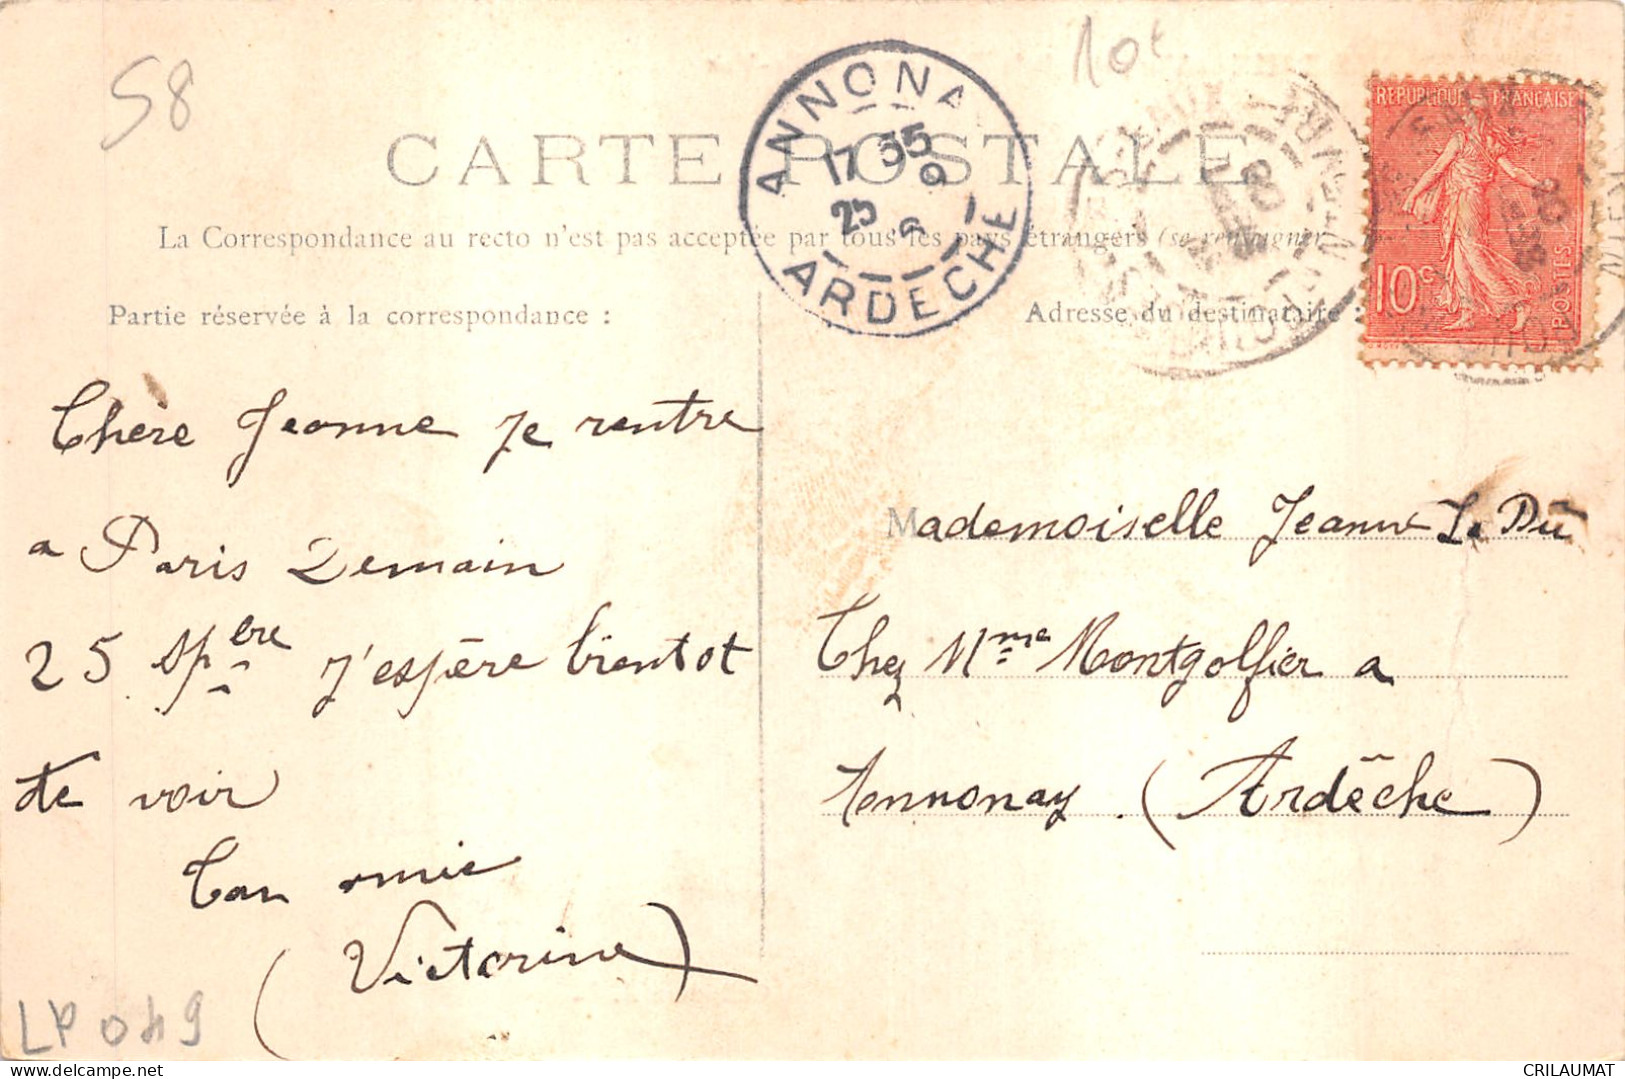 58
10c
CARTE POSTALE
ANNONAY
17 35
25 9
ARDECHE
REPUBLIQUE FRANÇAISE
10c
POSTES
La Correspondance au recto n'est pas acceptée par tous les pays étrangers (se renseigner
Partie réservée à la correspondance :
Adresse du destinataire :
Chère Jeanne je rentre
a Paris Demain
25 Spbre J'espère bientot
te voir
Ton amie
(Victorine)
Mademoiselle Jeanne Le Du
Chez Mme Montgolfier a
Annonay (Ardêche)
CRILAUMAT